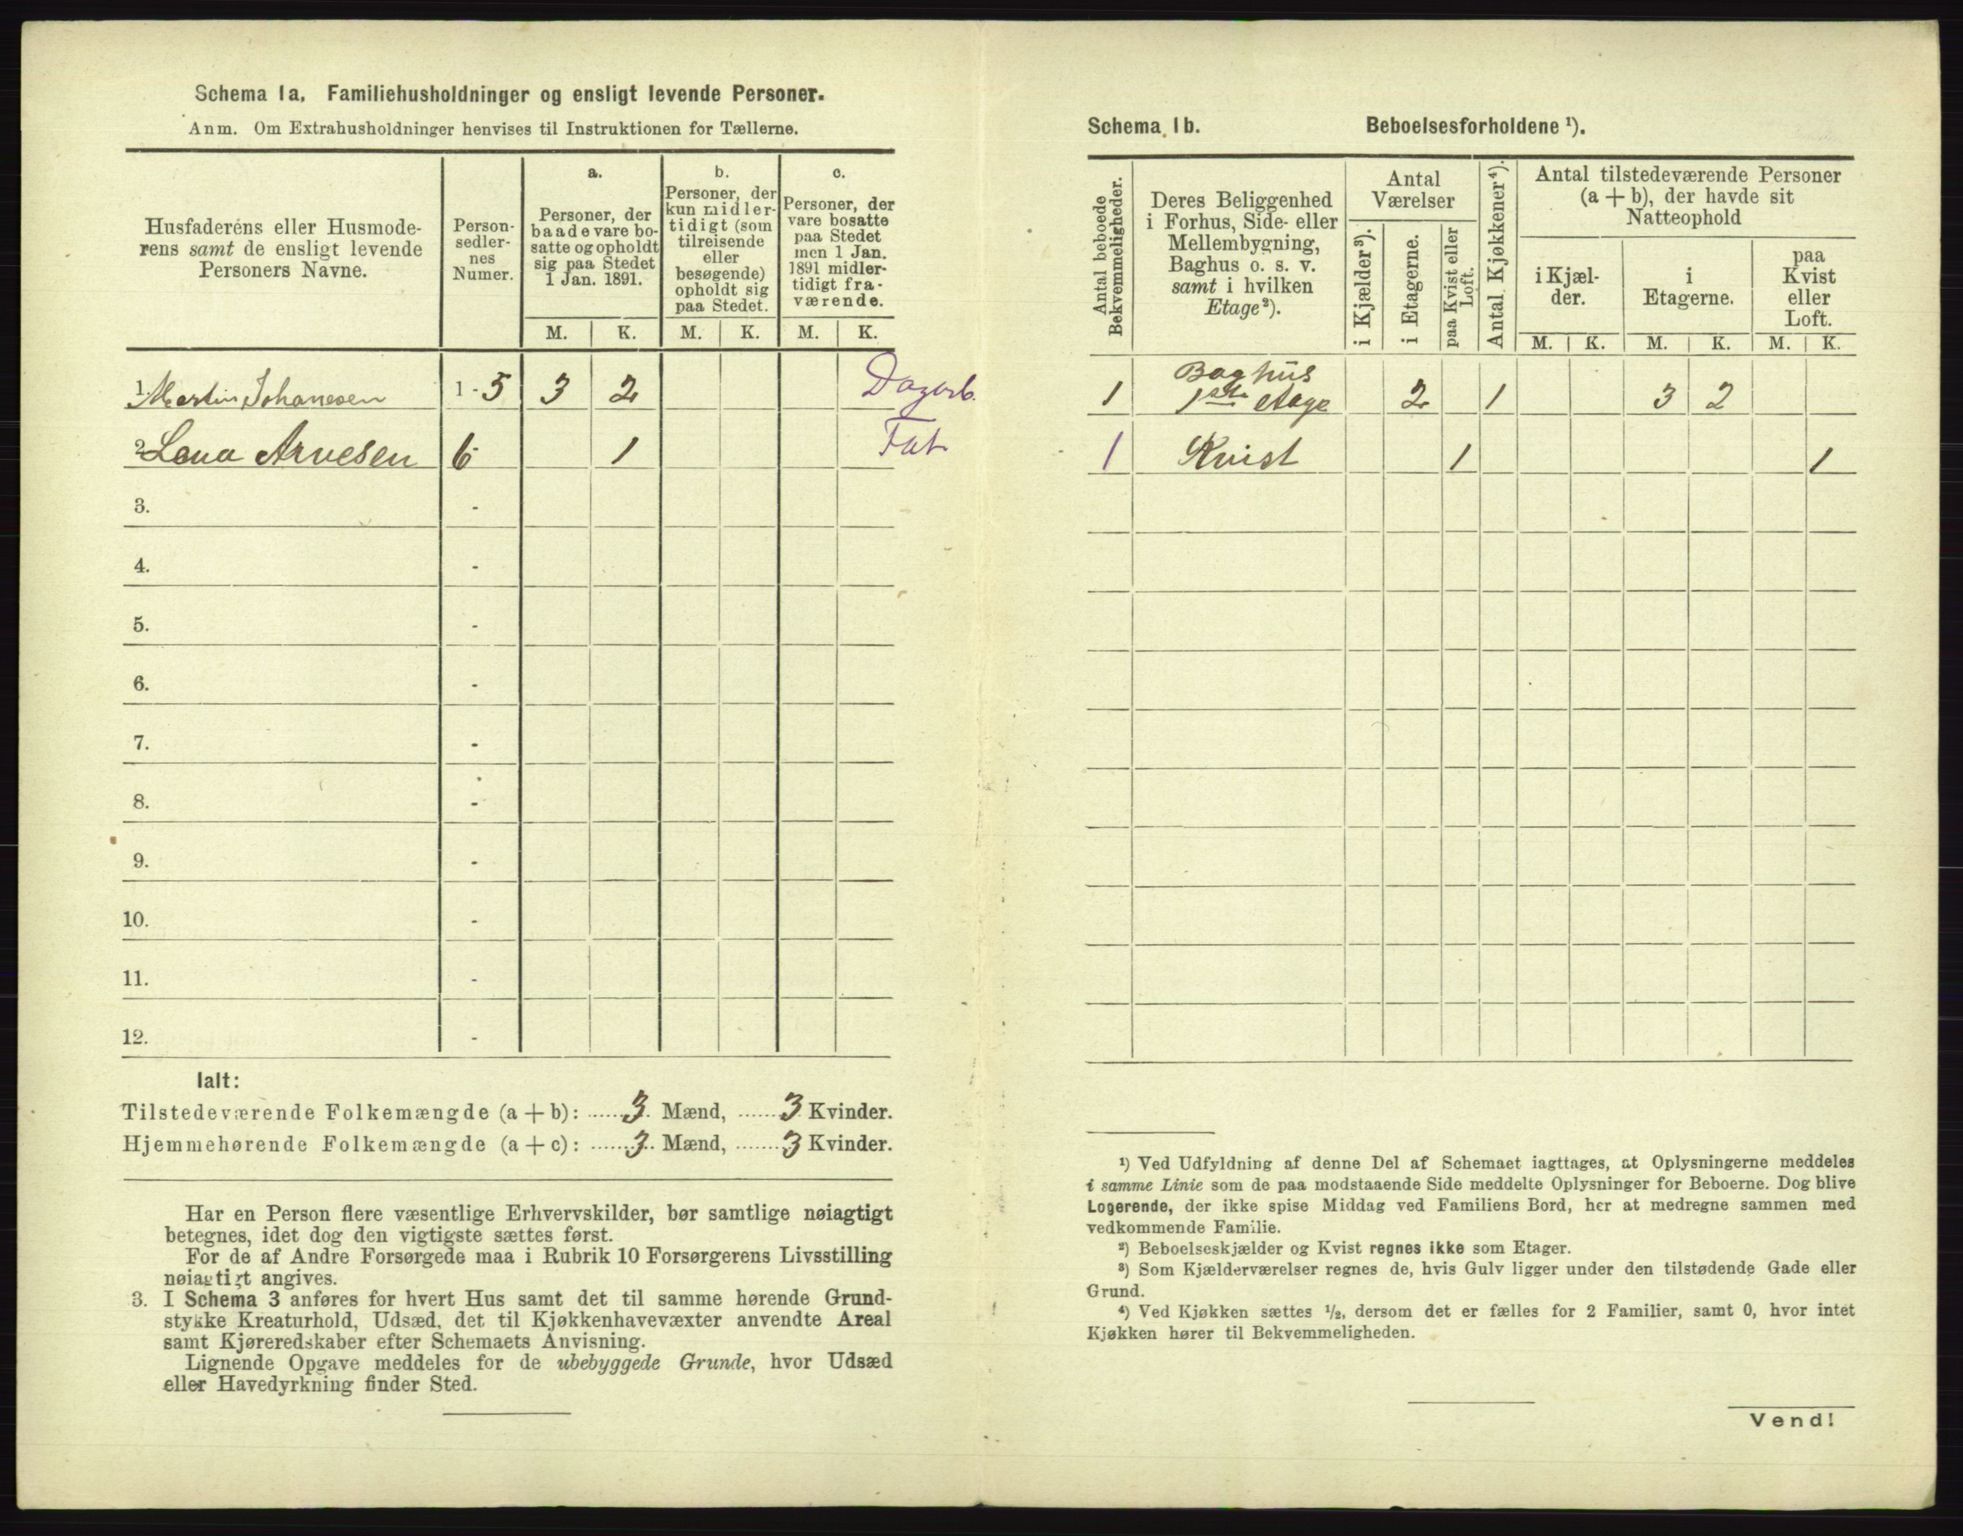 Schema 1a. Familiehusholdninger og ensligt levende Personer.
Anm. Om Extrahusholdninger henvises til Instruktionen for Tællerne.
Husfaderens eller Husmoderens samt de ensligt levende Personers Navne.
Personsedlernes Numer.
a. Personer, der baade vare bosatte og opholdt sig paa Stedet 1 Jan. 1891.
b. Personer, der kun midlertidigt (som tilreisende eller besøgende) opholdt sig paa Stedet.
c. Personer, der vare bosatte paa Stedet men 1 Jan. 1891 midlertidigt fraværende.
M. K. M. K. M. K.
1 Martin Johanesen 1-5 3 2 Dagarb.
2 Lena Arnesen 6- 1 Fat
3. -
4. -
5. -
6. -
7. -
8. -
9. -
10. -
11. -
12. -
Ialt:
Tilstedeværende Folkemængde (a+b): ...... 3. Mænd, ...... 3 Kvinder.
Hjemmehørende Folkemængde (a+c): ...... 3. Mænd, ...... 3 Kvinder.
Har en Person flere væsentlige Erhvervskilder, bør samtlige nøiagtigt
betegnes, idet dog den vigtigste sættes først.
For de af Andre Forsørgede maa i Rubrik 10 Forsørgerens Livsstilling
nøiagtigt angives.
3. I Schema 3 anføres for hvert Hus samt det til samme hørende Grund-
stykke Kreaturhold, Udsæd, det til Kjøkkenhavevæxter anvendte Areal
samt Kjøreredskaber efter Schemaets Anvisning.
Lignende Opgave meddeles for de ubebyggede Grunde, hvor Udsæd
eller Havedyrkning finder Sted.
Schema 1b. Beboelsesforholdene ¹).
Antal beboede Bekvemmeligheder.
Deres Beliggenhed i Forhus, Side- eller Mellembygning, Baghus o. s. v. samt i hvilken Etage²).
Antal Værelser
i Kjælder³).
i Etagerne.
paa Kvist eller Loft.
Antal Kjøkkener⁴).
Antal tilstedeværende Personer (a + b), der havde sit Natteophold
i Kjælder.
i Etagerne.
paa Kvist eller Loft.
M. K. M. K. M. K.
1 Baghus 1ste etage 2 1 3 2
1 Kvist 1 1
¹) Ved Udfyldning af denne Del af Schemaet iagttages, at Oplysningerne meddeles
i samme Linie som de paa modstaaende Side meddelte Oplysninger for Beboerne. Dog blive
Logerende, der ikke spise Middag ved Familiens Bord, her at medregne sammen med
vedkommende Familie.
²) Beboelseskjælder og Kvist regnes ikke som Etager.
³) Som Kjælderværelser regnes de, hvis Gulv ligger under den tilstødende Gade eller
Grund.
⁴) Ved Kjøkken sættes ½, dersom det er fælles for 2 Familier, samt 0, hvor intet
Kjøkken hører til Bekvemmeligheden.
Vend!